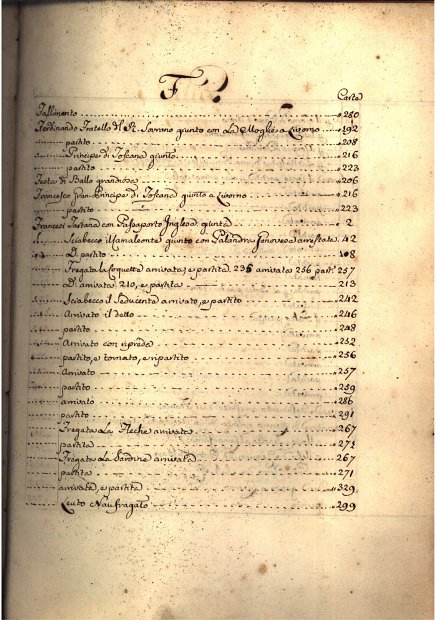 F
Carte
Fallimento 280
Ferdinando Fratello del R. Sovrano giunto con La Moglie a Livorno 192
partito 208
Principe di Toscana giunto 216
partito 223
Festa di Ballo grandiosa 206
Francesco Gran Principe di Toscana giunto a Livorno 216
partito 223
Francesi Tartana con Passaporto Inglese giunta 2
Sciabecco il Camaleonte giunto con Palandra Genovese arrestata 42
D.° partito 108
Fregata la Coquette arrivata, e partita 235 arrivata 256 part.a 257
D.a arrivata 210, e partita 213
Sciabecco il Seducente arrivato, e partito 242
Arrivato il detto 246
partito 248
Arrivato con riprede 252
partito, e tornato, e ripartito 256
Arrivato 257
partito 259
arrivato 286
partito 291
Fregata La Fleche arrivata 267
partita 271
Fregata La Sardine arrivata 267
partita 271
arrivata, e partita 329
Leuto Naufragato 299